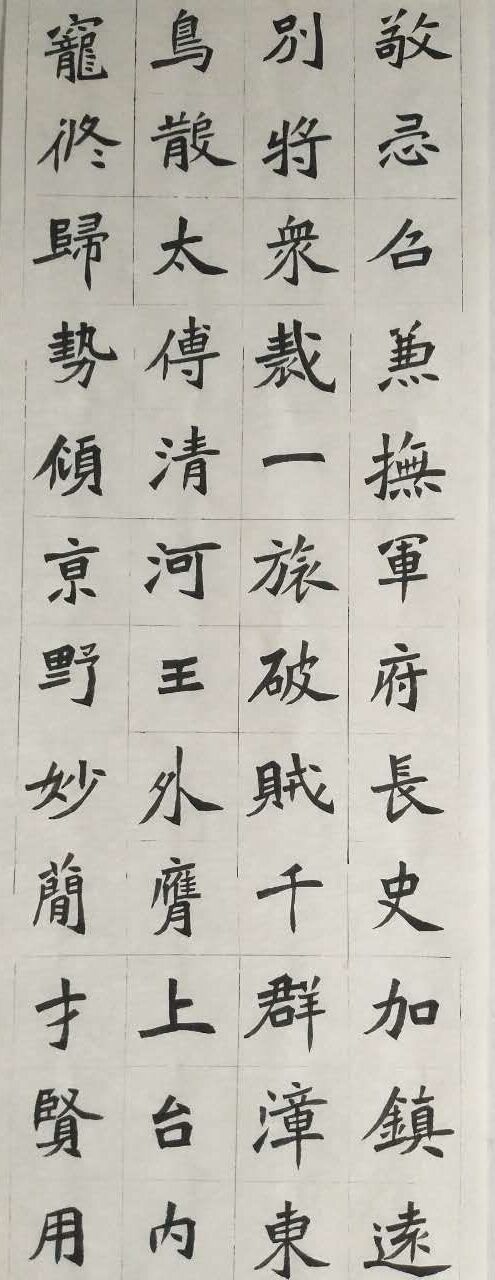 敬忌召兼撫軍府長史加鎮遠
別將衆裁一旅破賊千群漳東
鳥散太傅清河王外膺上台內
寵終歸勢傾京野妙簡才賢用